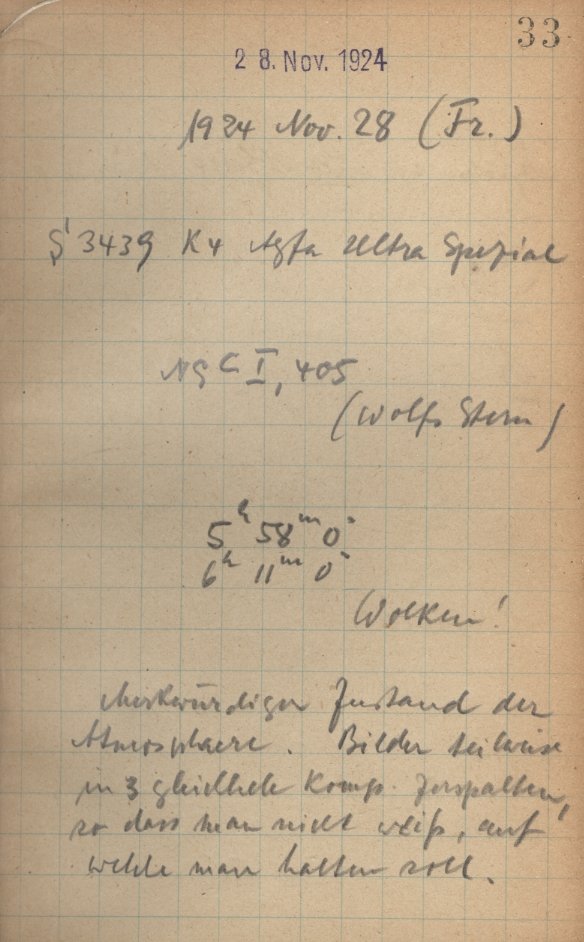 33
28. Nov. 1924
1924 Nov. 28 (Fr.)
S 3439 K4 Agfa Ultra Spezial
NGC I, 405
(Wolfs Stern)
5h 58m 0s
6h 11m 0s
Wolken!
Merkwürdiger Zustand der
Atmosphaere. Bilder teilweise
in 3 gleichhelle Komp. zerspalten,
so dass man nicht weiß, auf
welche man halten soll.